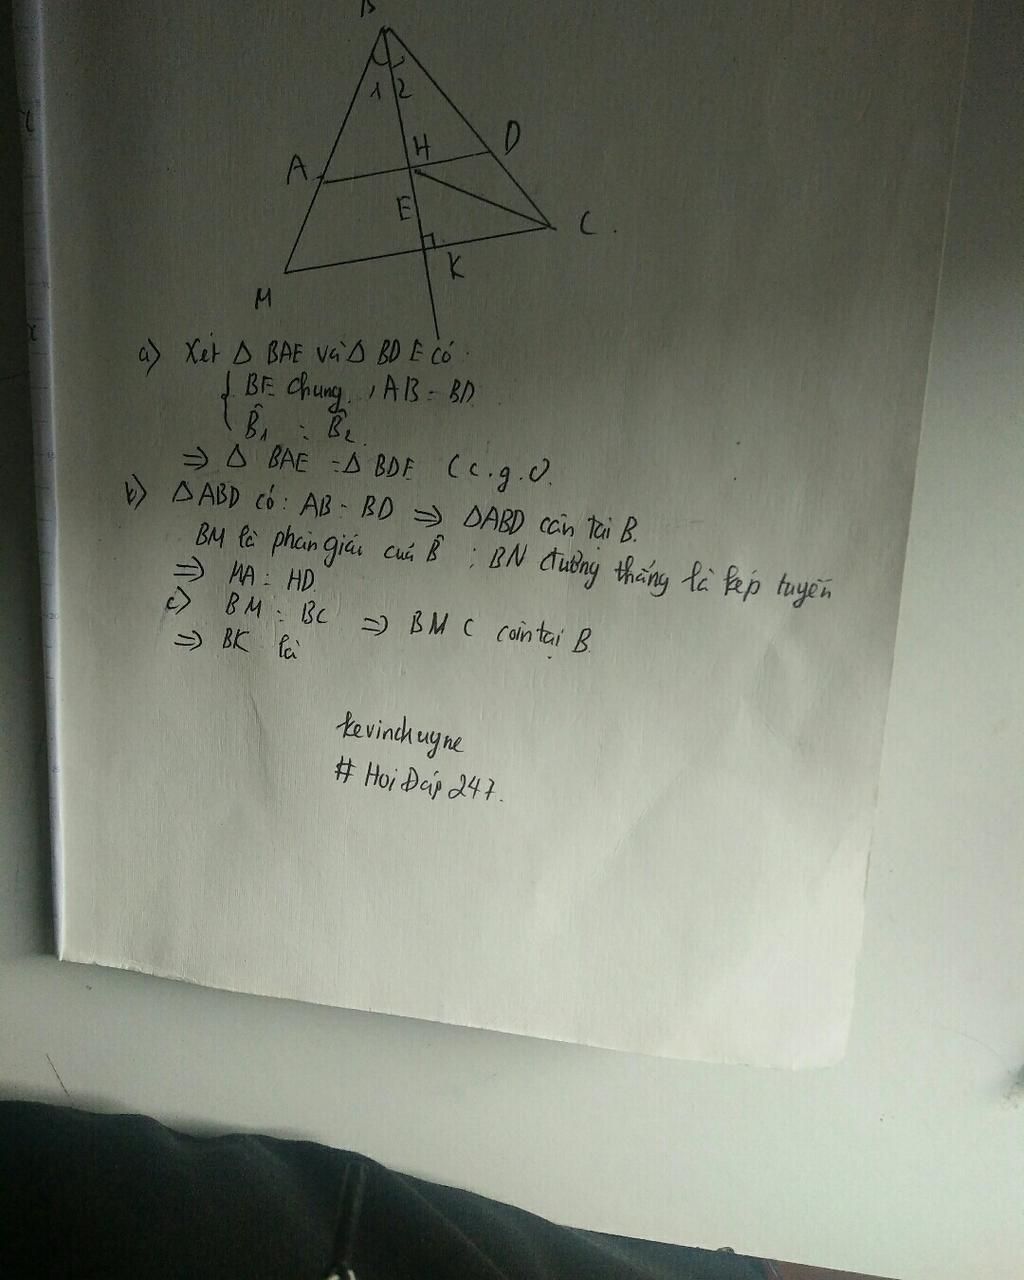 B
1 2
H D
A
E
C.
K
M
a) Xét Δ BAE và Δ BDE có.
BE chung, AB = BD
B̂1 = B̂2.
⇒ Δ BAE = Δ BDE (c.g.c).
b) ΔABD có: AB = BD ⇒ ΔABD cân tại B.
BM là phân giác của B̂; BN đường thẳng là kép tuyến
⇒ HA = HD.
c) BM = BC ⇒ BMC cân tại B.
⇒ BK là
kevinchuyne
# Hoi Đáp 247.